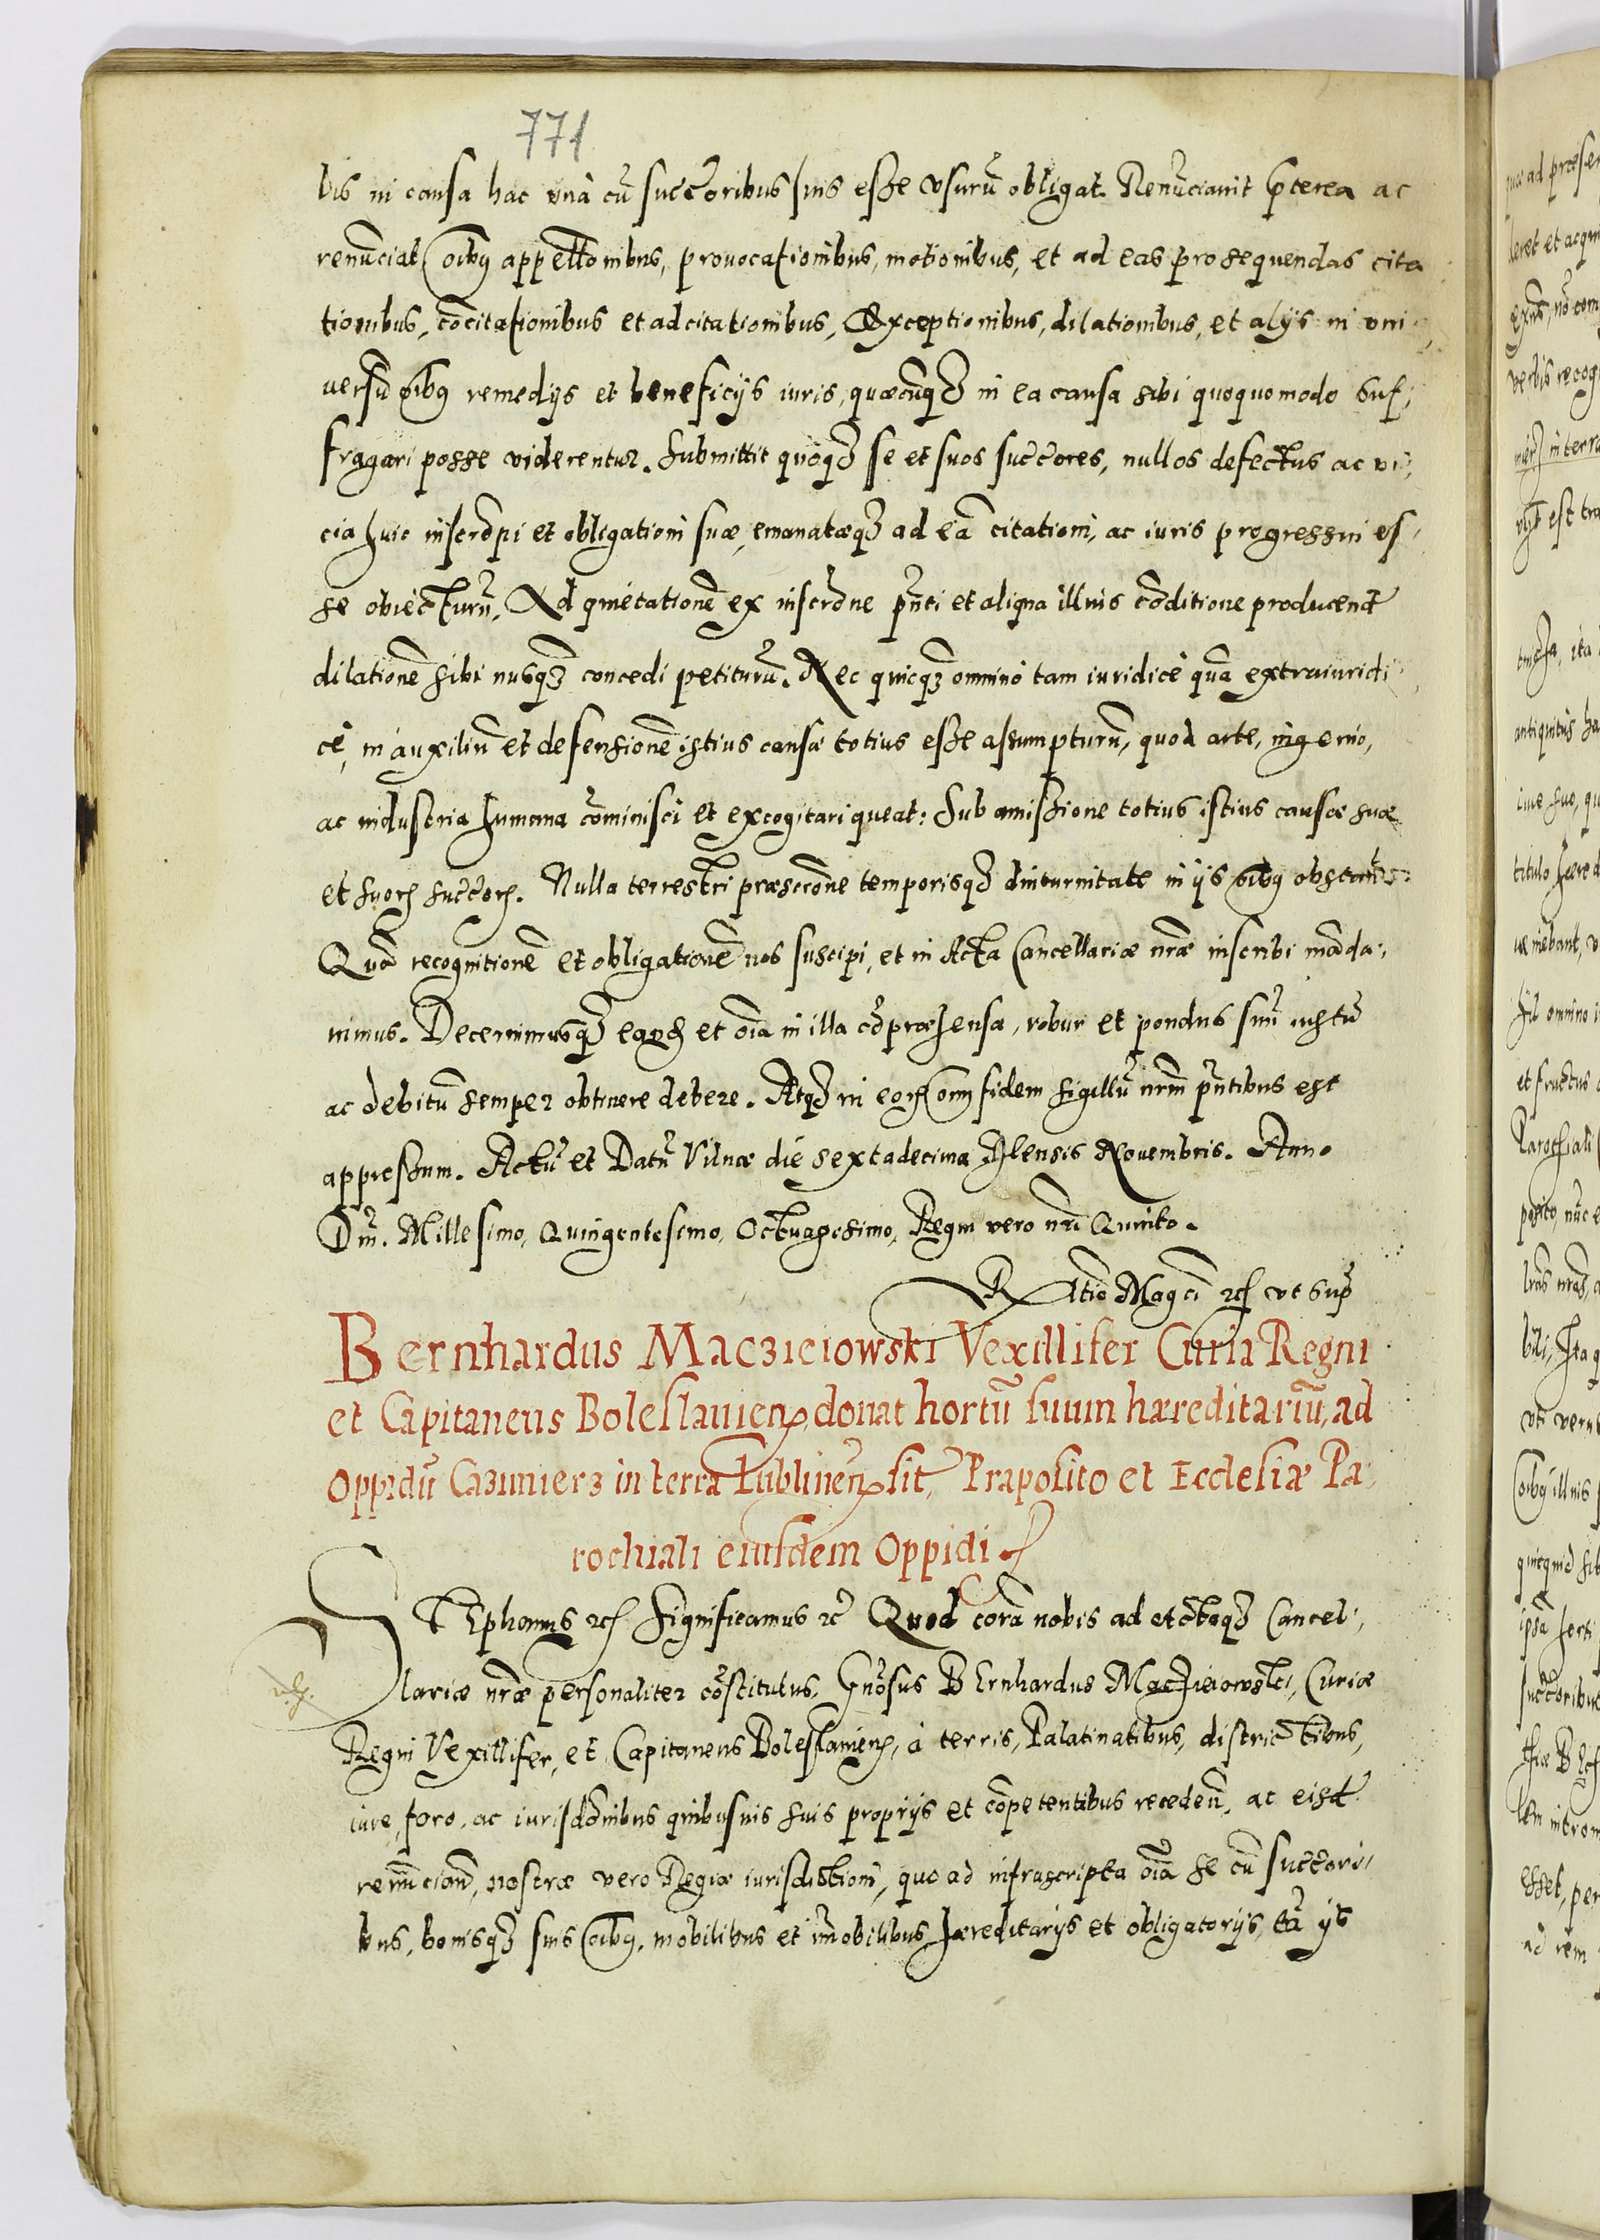 771
bis in causa hac unà cũ succ̃oribus suis esse usurũ obligat. Renũciavit p̃terea ac
renũciat oĩbꝫ appell̃onibus, provocationibus, motionibus, et ad eas prosequendas cita
tionibus, cõcitationibus et adcitationibus, Exceptionibus, dilationibus, et alijs in uni,
versũ oĩbꝫ remedijs et beneficijs iuris, quæcũqꝫ in ea causa sibi quoquomodo suf,
fragari posse viderentur. Submittit quoqꝫ se et suos succ̃ores, nullos defectus ac vi,
cia huic inscrõni et obligationi suæ, emanatæqꝫ ad eã citationi, ac iuris progressui es,
se obiecturũ. Ad quietationẽ ex inscrõne pñti et aliqua illius cõditione producend̃
dilationẽ sibi nusqꝫ concedi petiturũ. Nec quicqꝫ omnino tam iuridicè quã extraiuridi,
cè, in auxiliũ et defensionẽ istius causæ totius esse assumpturũ, quod arte, ingenio,
ac industria humana cõminisci et excogitari queat: Sub amissione totius istius causæ suæ
et suoꝝ succ̃oꝝ. Nulla terrestri præscrõne temporisqꝫ diuturnitate in ijs oĩbꝫ obstante:
Quã recognitionẽ et obligationẽ nos suscipi, et in Acta Cancellariæ nr̃æ inscribi mãda,
vimus. Decernimusqꝫ eandẽ et oĩa in illa cõpræhensa, robur et pondus suũ iustũ
ac debitũ semper obtinere debere. Atqꝫ in eoꝝ oĩm fidem sigillũ nr̃m pñtibus est
appressum. Actũ et Datũ Vilnæ die sextadecima Mensis Novembris. Anno
Dñi. Millesimo, Quingentesimo, Octuagesimo, Regni vero nr̃i Quinto.
R̃latio Mag̃ci ꝛc̃ ut sup̃
Bernhardus Macзieiowski Vexillifer Curiæ Regni
et Capitaneus Boleslauien̄, donat hortũ suum hæreditariũ, ad
Oppidũ Cazimierз in terra Lublinen̄ sit̃, Præposito et Ecclesiæ Pa,
rochiali eiusdem Oppidi.
STEphanus ꝛc̃ Significamus ꝛc̃ Quod corã nobis ad etc̃taqꝫ Cancel,
lariæ nr̃æ personaliter cõstitutus, Gñosus BErnhardus Macзieiowski, Curiæ
Regni Vexillifer, et Capitaneus Boleslauien̄, à terris, Palatinatibus, districtibus,
iure, foro, ac iurisdõnibus quibusuis suis proprijs et cõpetentibus receden̄, ac eisd̃
renũciand̃, nostræ vero Regiæ iurisdictioni, quo ad infrascripta oĩa se cũ succ̃ori,
bus, bonisqꝫ suis oĩbꝫ, mobilibus et ĩmobilibus, hæreditarijs et obligatorijs, tã ijs